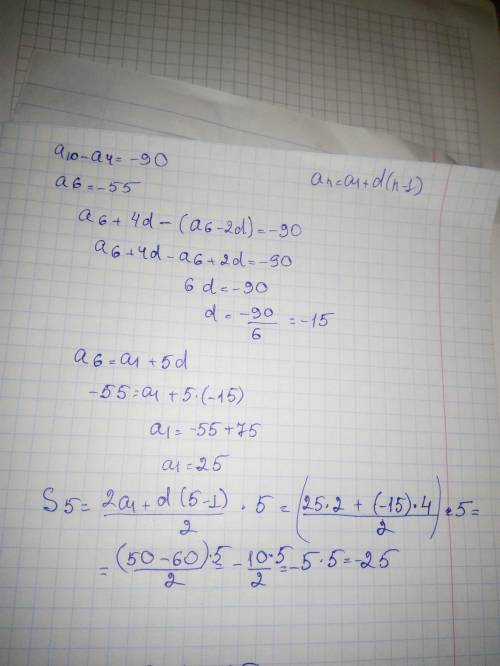 a₁₀ - a₄ = -90
aₙ = a₁ + d(n-1)
a₆ = -55
a₆ + 4d - (a₆ - 2d) = -90
a₆ + 4d - a₆ + 2d = -90
6d = -90
d = -90/6 = -15
a₆ = a₁ + 5d
-55 = a₁ + 5·(-15)
a₁ = -55 + 75
a₁ = 25
S₅ = (2a₁ + d(5-1))/2 · 5 = ((25·2 + (-15)·4)/2) · 5 =
= (50-60)·5/2 = -10·5/2 = -5·5 = -25